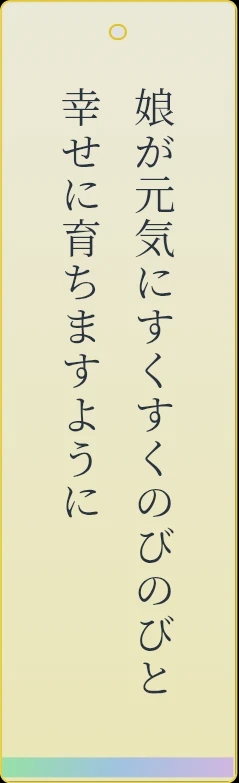 娘が元気にすくすくのびのびと
幸せに育ちますように